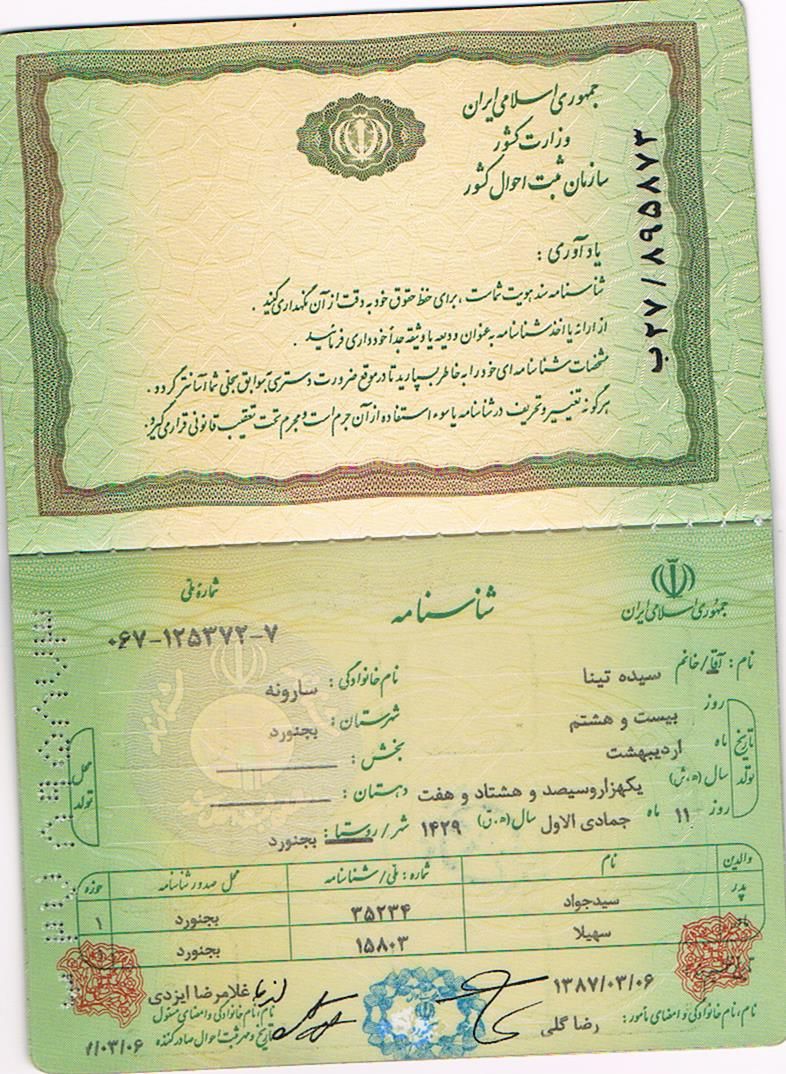 جمهوری اسلامی ایران
وزارت کشور
سازمان ثبت احوال کشور
ب۲۷/۸۹۵۸۷۳
یادآوری :
شناسنامه سند هویت شماست ، برای حفظ حقوق خود به دقت از آن نگهداری کنید .
از ارائه یا اخذ شناسنامه به عنوان ودیعه یا وثیقه جداً خودداری فرمائید .
مشخصات شناسنامه ای خود را به خاطر بسپارید تا در موقع ضرورت دسترسی به سوابق سجلی شما آسانتر گردد .
هرگونه تغییر و تحریف در شناسنامه یا سوء استفاده از آن جرم است و مجرم تحت تعقیب قانونی قرار می گیرد .
جمهوری اسلامی ایران
شناسنامه
شماره ملی
۰۶۷-۱۲۵۳۷۲-۷
نام : آقا/خانم سیده تینا
نام خانوادگی : سارونه
تاریخ تولد
روز بیست و هشتم
ماه اردیبهشت
سال (ه.ش) یکهزاروسیصد و هشتاد و هفت
روز ۱۱ ماه جمادی الاول سال (ه.ق) ۱۴۲۹
محل تولد
شهرستان : بجنورد
بخش :
دهستان :
شهر/روستا : بجنورد
والدین نام شماره : ملی/شناسنامه محل صدور شناسنامه حوزه
پدر سیدجواد ۳۵۲۳۴ بجنورد ۱
سهیلا ۱۵۸۰۳ بجنورد
۱۳۸۷/۰۳/۰۶
نام، نام خانوادگی و امضای مأمور : رضا گلی
غلامرضا ایزدی
نام، نام خانوادگی و امضای مسئول
تاریخ و مهر ثبت احوال صادرکننده
/۰۳/۰۶